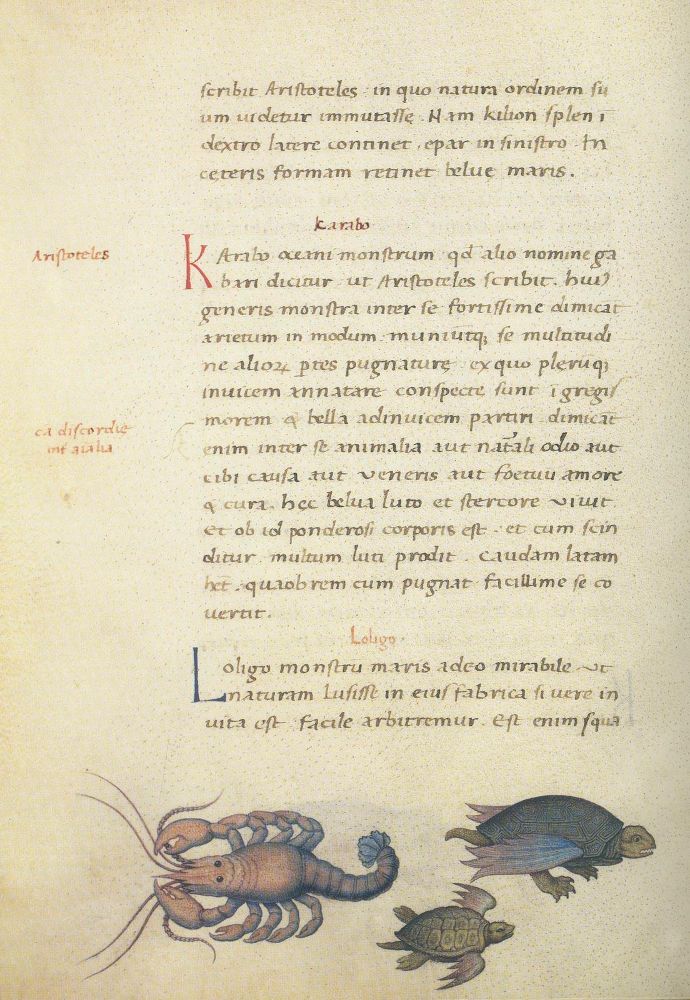 scribit Aristoteles in quo natura ordinem su
um videtur immutasse. Nam kilion splen ī
dextro latere continet, epar in sinistro. In
ceteris formam retinet belue maris.
Karabo
Aristoteles
KArabo oceani monstrum qd alio nomine ga
bari dicitur ut Aristoteles scribit. hui9
generis monstra inter se fortissime dimicāt
arietum in modum muniūtq; se multitudi
ne alioꝝ ꝑtes pugnature ex quo pleruq;
invicem annatare conspecte sunt ī gregis
morem & bella adinvicem partiri dimicāt
cā discordie
int aīalia
enim inter se animalia aut natāli odio aut
cibi causa aut veneris aut foetuū amore
& cura. hec belua luto et stercore vivit
et ob id ponderosi corporis est et cum scin
ditur multum luti prodit. caudam latam
het. quaobrem cum pugnat facillime se co
vertit.
Loligo.
Loligo monstrū maris adeo mirabile ut
naturam lusisse in eius fabrica si vere in
vita est facile arbitremur. Est enim squa